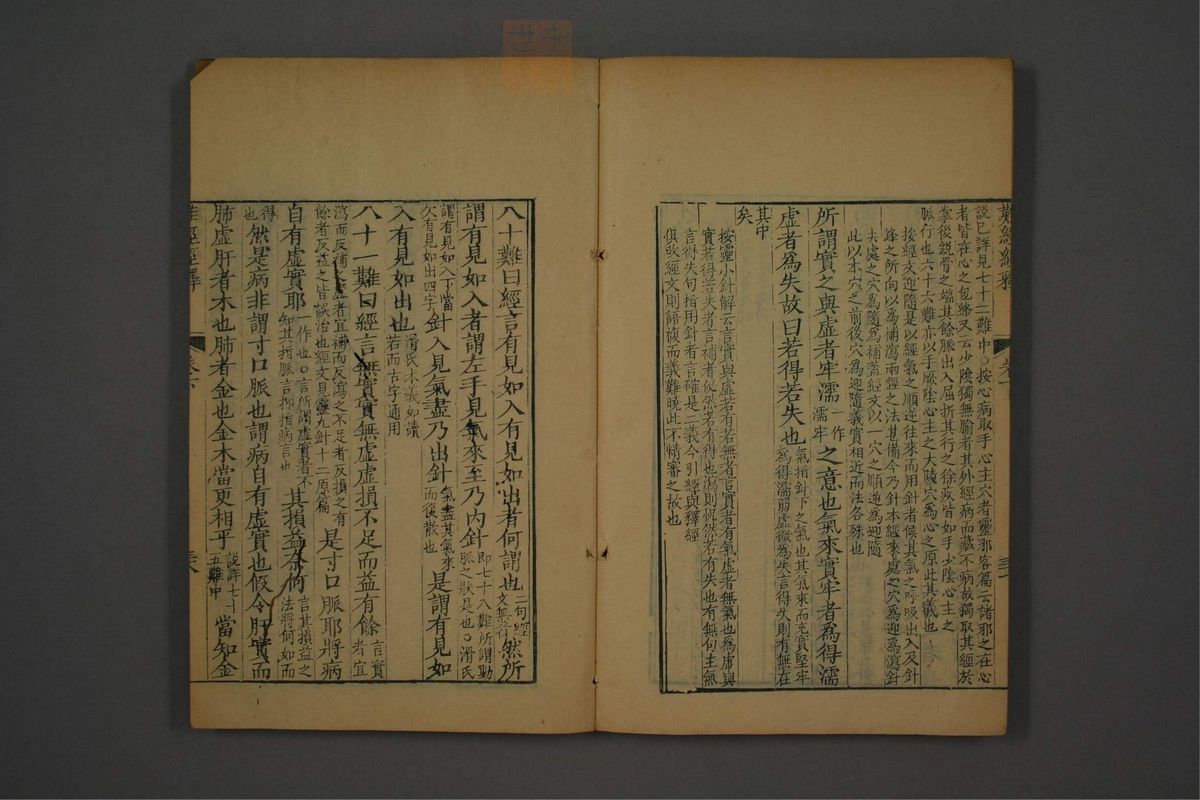 難經經釋
說已詳見七十二難中○按心病取手心主穴者靈邪客篇云諸邪之在心
者皆在心之包絡又云少陰獨無腧者其外經病而藏不病故獨取其經於
掌後銳骨之端其餘脈出入屈折其行之徐疾皆如手少陰心主之
脈行也六十六難亦以手厥陰心主之大陵穴為心之原此其義也
按經文迎隨是以經氣之順逆往來而用針者候其氣之呼吸出入及針
鋒之所向以為補瀉兩經之法甚備今乃針本經來處之穴為迎為瀉針
去處之穴為隨為補蓋經文以一穴之順逆為迎隨
此以本穴之前後穴為迎隨義實相近而法各殊也
所謂實之與虛者牢濡一作濡牢之意也氣來實牢者為得濡
虛者為失故曰若得若失也氣指針下之氣也其氣來而充實堅牢為得濡弱虛微為失言得失則有無在
其中矣
按靈小針解云言實與虛若有若無者言實者有氣虛者無氣也為虛與
實若得若失者言補者佖然若有得也瀉則怳然若有失也有無句主氣
言得失句指用針者言確是二義今引經與釋經
俱故經文則語複而義難曉此不精審之故也
八十難曰經言有見如入有見如出者何謂也二句經文無考然所
謂有見如入者謂左手見氣來至乃內針即七十八難所謂動脈之狀是也○滑氏
謂有見如入下當欠有見如出四字針入見氣盡乃出針氣盡其氣來而後散也是謂有見如
入有見如出也滑氏本義如讀若而古字通用
八十一難曰經言無實實無虛虛損不足而益有餘言實者宜
瀉而反補之虛者宜補而反瀉之不足者反損之有餘者反益之皆誤治也經文見靈九針十二原篇是寸口脈耶將病
自有虛實耶一作也○言所謂虛實者不知其指脈言抑指病言也其損益奈何言其損益之法將何如而
得也然是病非謂寸口脈也謂病自有虛實也假令肝實而
肺虛肝者木也肺者金也金木當更相平說詳七十五難中當知金
難經經釋